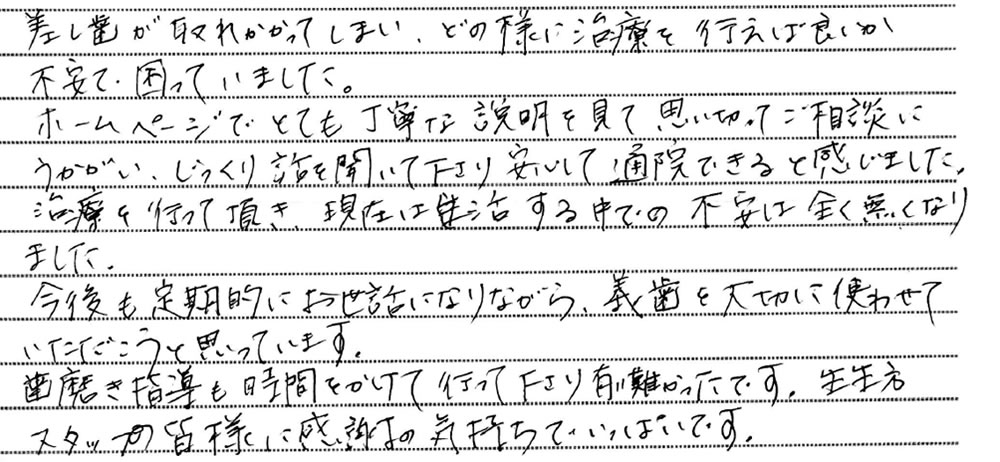 差し歯が取れかかってしまい、どの様に治療を行えば良いか
不安で困っていました。
ホームページでとても丁寧な説明を見て思い切ってご相談に
うかがい、じっくり話を聞いて下さり安心して通院できると感じました。
治療を行って頂き、現在は生活する中での不安は全く無くなり
ました。
今後も定期的にお世話になりながら、義歯を大切に使わせて
いただこうと思っています。
歯磨き指導も時間をかけて行って下さり有難かったです。先生方
スタッフの皆様に感謝の気持ちでいっぱいです。